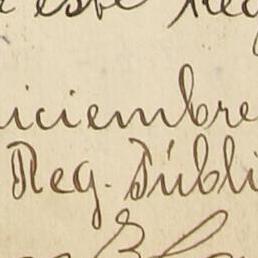 este Reg
iciembre
Reg. Públi